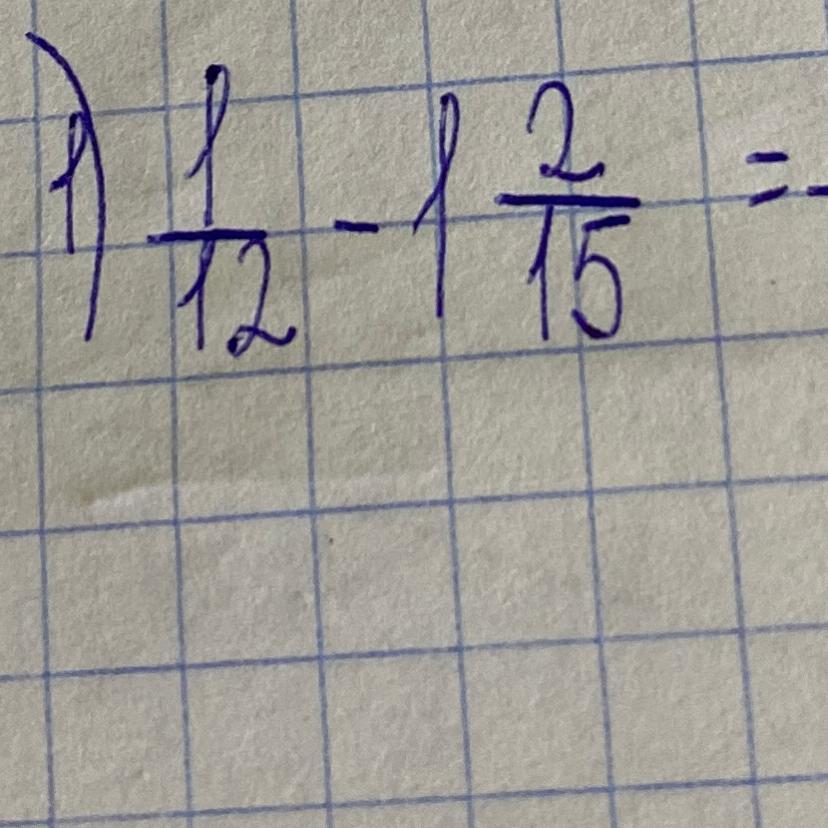 1) 1/12 - 1 2/15 = -